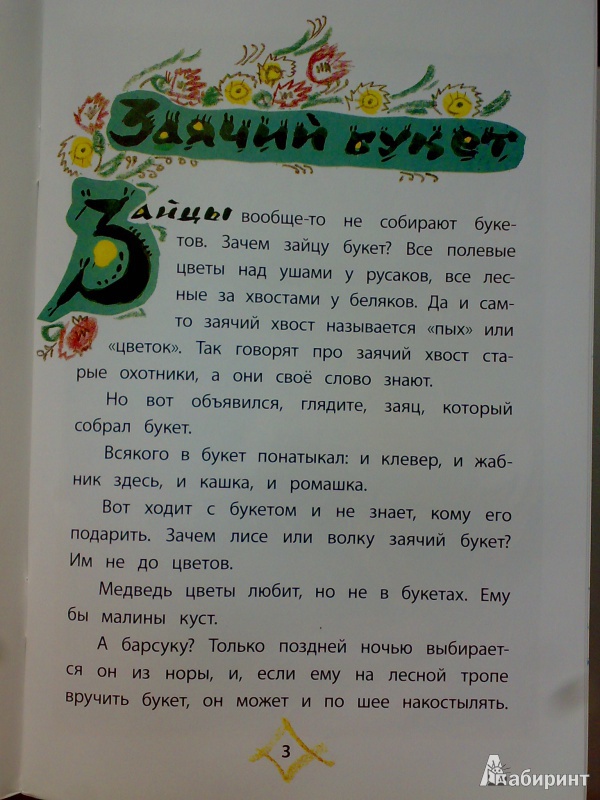 Заячий букет
Зайцы вообще-то не собирают буке-
тов. Зачем зайцу букет? Все полевые
цветы над ушами у русаков, все лес-
ные за хвостами у беляков. Да и сам-
то заячий хвост называется «пых» или
«цветок». Так говорят про заячий хвост ста-
рые охотники, а они своё слово знают.
Но вот объявился, глядите, заяц, который
собрал букет.
Всякого в букет понатыкал: и клевер, и жаб-
ник здесь, и кашка, и ромашка.
Вот ходит с букетом и не знает, кому его
подарить. Зачем лисе или волку заячий букет?
Им не до цветов.
Медведь цветы любит, но не в букетах. Ему
бы малины куст.
А барсуку? Только поздней ночью выбирает-
ся он из норы, и, если ему на лесной тропе
вручить букет, он может и по шее накостылять.
3
Лабиринт